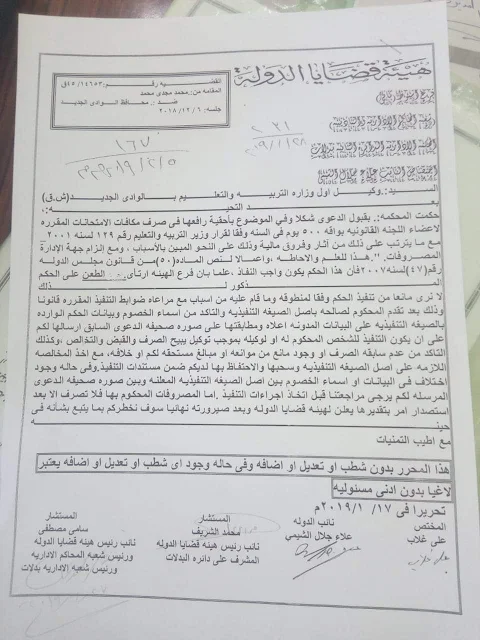 هيئة قضايا الدولة
القضيه رقم: ١٤٦٥٣/٤٥ق
المقامه من: محمد مجدى محمد
ضد: محافظ الوادى الجديد
جلسه: ٢٠١٨/١٢/٦
١٦٧
السيد: وكيل اول وزاره التربيه والتعليم بالوادى الجديد (ش.ق)
بعد التحيه
حكمت المحكمه: بقبول الدعوى شكلا وفي الموضوع بأحقية رافعها في صرف مكافات الامتحانات المقرره
لاعضاء اللجنه القانونيه بواقه ٥٠٠ يوم فى السنه وفقا لقرار وزير التربيه والتعليم رقم ١٢٩ لسنه ٢٠٠١
مع ما يترتب على ذلك من آثار وفروق مالية وذلك على النحو المبين بالأسباب، ومع إلزام جهة الإدارة
المصروفات. "هذا للعلم والاحاطه، واعمالا لنص الماده(٥٠)من قانون مجلس الدوله
رقم(٤٧)لسنه٢٠٠٧فان هذا الحكم يكون واجب النفاذ، علما بان فرع الهيئه ارتأى الطعن على الحكم
المذكور لذلك
لا نرى مانعا من تنفيذ الحكم وفقا لمنطوقه وما قام عليه من اسباب مع مراعاه ضوابط التنفيذ المقرره قانونا
وذلك بعد تقدم المحكوم لصالحه باصل الصيغه التنفيذيه والتاكد من اسماء الخصوم وبيانات الحكم الوارده
بالصيغه التنفيذيه على البيانات المدونه اعلاه ومطابقتها على صوره صحيفه الدعوى السابق ارسالها لكم
على ان يكون التنفيذ للشخص المحكوم له او لوكيله بموجب توكيل يبيح الصرف والقبض والتخالص، وكذلك
التاكد من عدم سابقه الصرف او وجود مانع من موانعه او مبالغ مستحقه لكم او خلافه، مع اخذ المخالصه
اللازمه على اصل الصيغه التنفيذيه وسحبها والاحتفاظ بها لديكم ضمن مستندات التنفيذ.وفى حاله وجود
اختلاف فى البيانات او اسماء الخصوم بين اصل الصيغه التنفيذيه المعلنه وبين صوره صحيفه الدعوى
المرسله لكم يرجى مراجعتنا قبل اتخاذ اجراءات التنفيذ. اما المصروفات المحكوم بها فلا تصرف الا بعد
استصدار امر بتقديرها يعلن لهيئه قضايا الدوله وبعد صيرورته نهائيا سوف نخطركم بما يتبع بشأنه فى
حينه
مع اطيب التمنيات
هذا المحرر بدون شطب او تعديل او اضافه وفى حاله وجود اى شطب او تعديل او اضافه يعتبر
لاغيا بدون ادنى مسئوليه
تحريرا فى ١٧/ ٢٠١٩/١م
المختص
على غلاب
نائب الدوله
علاء جلال الشيمى
المستشار
محمد الشريف
نائب رئيس هيئه قضايا الدوله
المشرف على دائره البدلات
المستشار
سامى مصطفى
نائب رئيس هيئه قضايا الدوله
ورئيس شعبه المحاكم الاداريه
ورئيس شعبه الاداريه بدلات